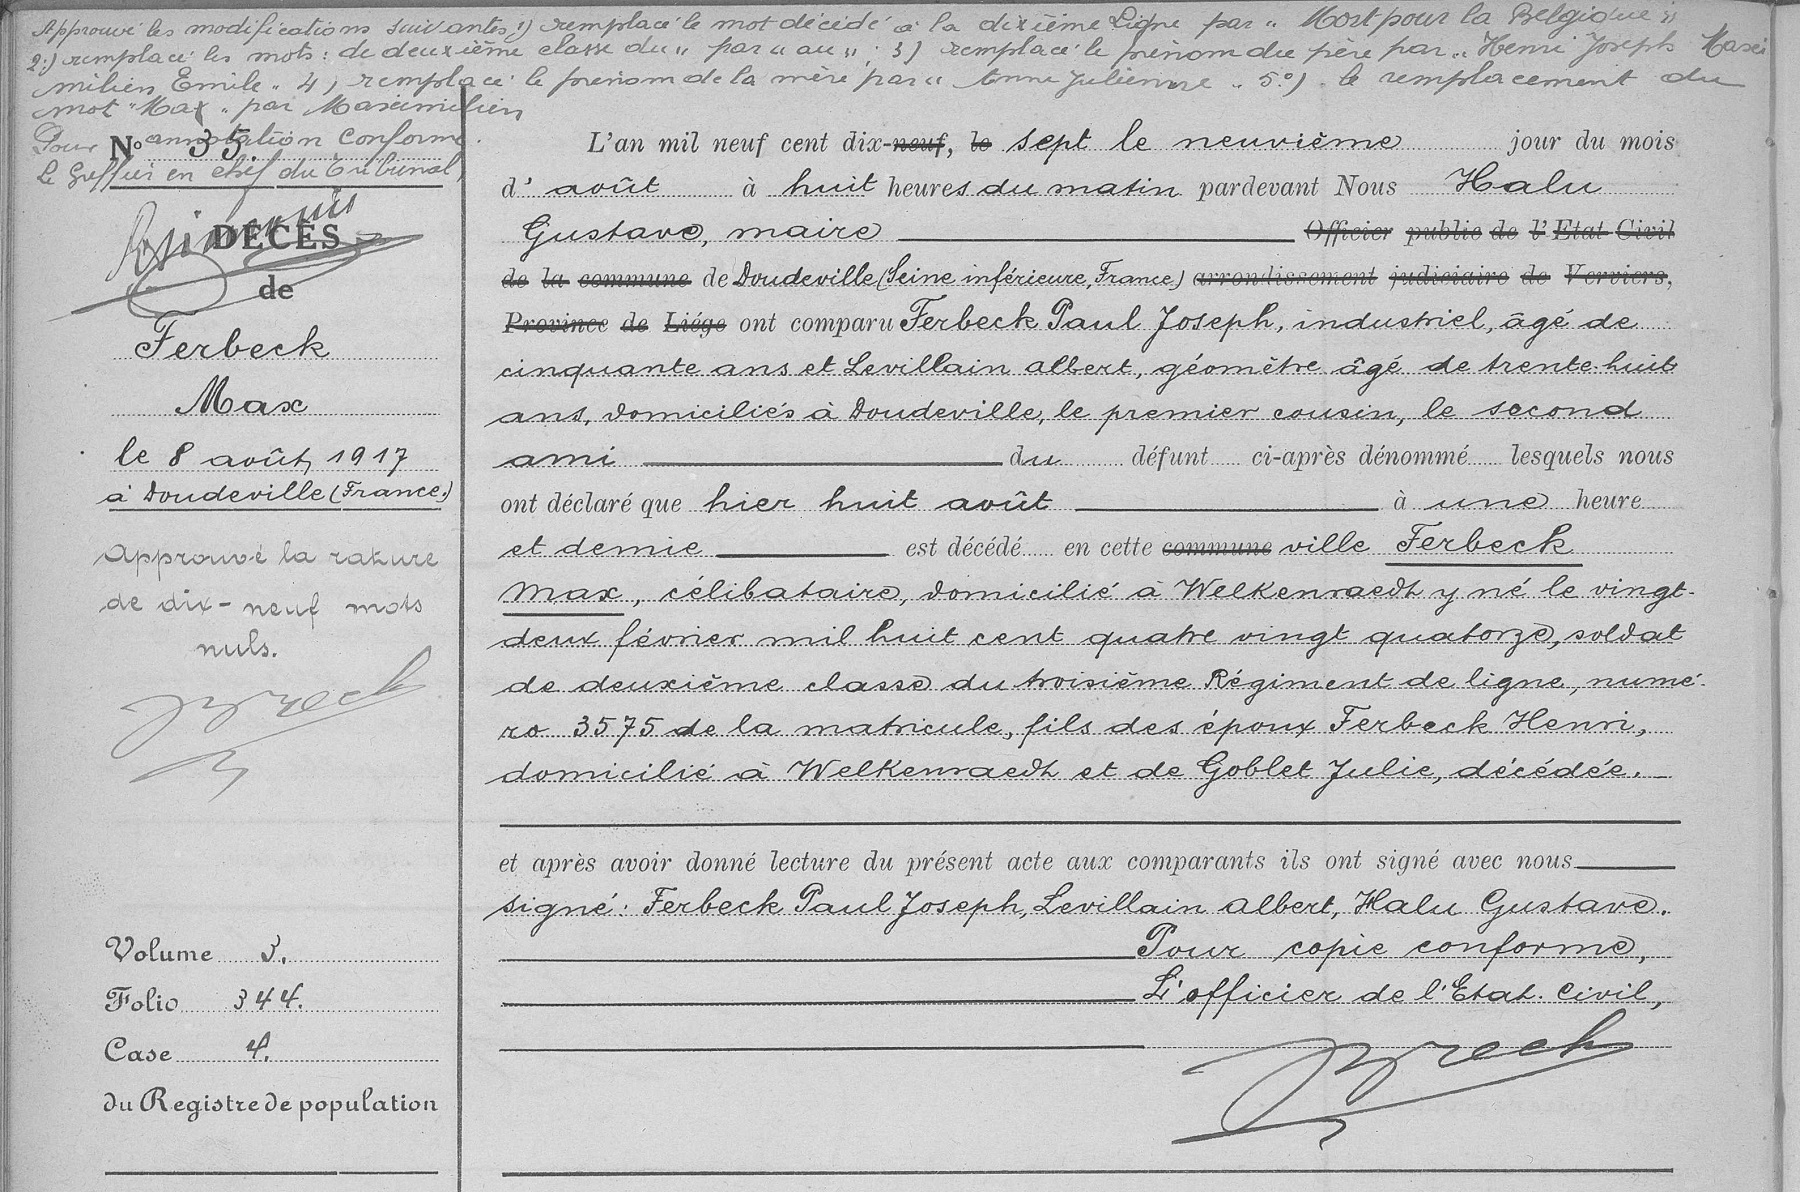 Approuvé les modifications suivantes: 1) remplacé le mot décédé à la dixième Ligne par "Mort pour la Belgique";
2.) remplacé les mots: de deuxième classe du" par "au"; 3) remplacé le prénom du père par "Henri Joseph Maxi
milien Emile". 4) remplacé le prénom de la mère par "Anne Julienne". 5º) le remplacement du
mot "Max" par Maximilien
Pour annotation conforme.
Le Greffier en chef du Tribunal,
Nº 35.
DÉCÈS
de
Ferbeck
Max
le 8 août, 1917
à Doudeville (France.)
Approuvé la rature
de dix-neuf mots
nuls.
Volume 3.
Folio 344.
Case 4.
du Registre de population
L'an mil neuf cent dix-neuf, le sept le neuvième jour du mois
d' août à huit heures du matin pardevant Nous Halu
Gustave, maire Officier public de l'Etat Civil
de la commune de Doudeville (Seine inférieure, France) arrondissement judiciaire de Verviers,
Province de Liége ont comparu Ferbeck Paul Joseph, industriel, âgé de
cinquante ans et Levillain Albert, géomètre âgé de trente-huit
ans, domiciliés à Doudeville, le premier cousin, le second
ami du défunt ci-après dénommé lesquels nous
ont déclaré que hier huit août à une heure
et demie est décédé en cette commune ville Ferbeck
Max, célibataire, domicilié à Welkenraedt y né le vingt-
deux février mil huit cent quatre vingt quatorze, soldat
de deuxième classe du troisième Régiment de ligne, numé-
ro 3575 de la matricule, fils des époux Ferbeck Henri,
domicilié à Welkenraedt et de Goblet Julie, décédée.
et après avoir donné lecture du présent acte aux comparants ils ont signé avec nous
signé: Ferbeck Paul Joseph, Levillain Albert, Halu Gustave.
Pour copie conforme,
L'officier de l'Etat. Civil,